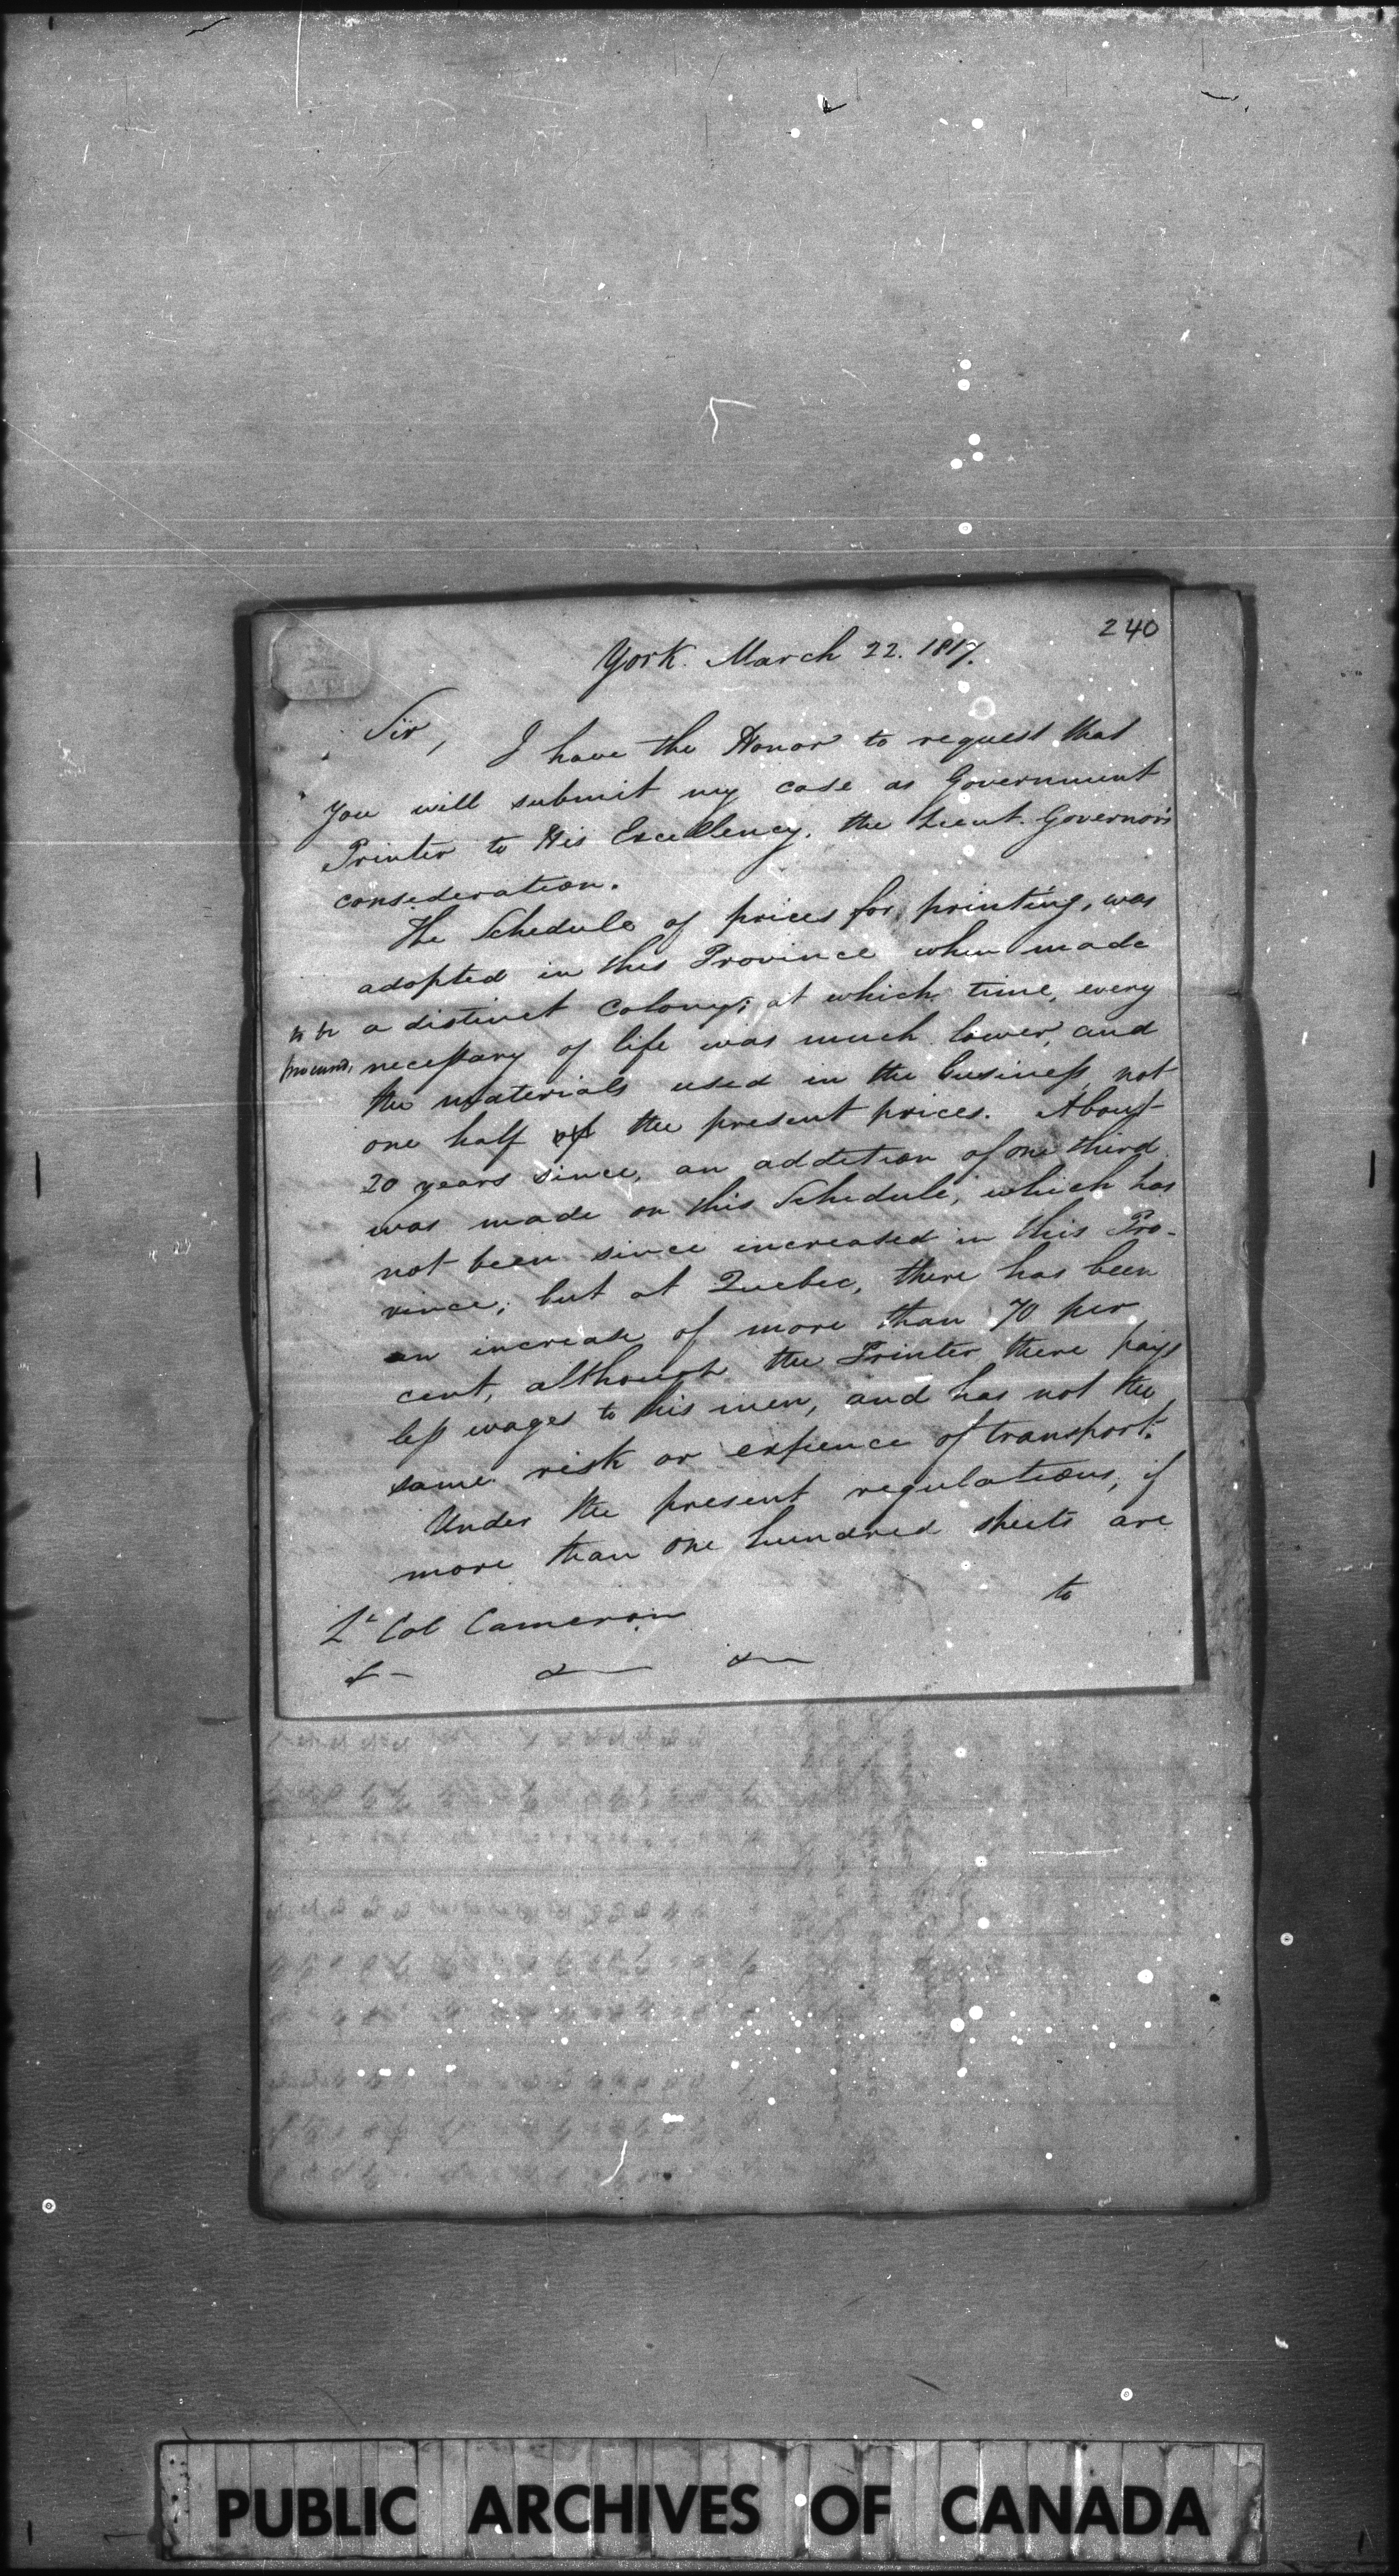 240
York. March 22. 1817.
Sir,
I have the Honor to request that
you will submit my case as Government
Printer to His Excellency, the Lieut. Governor's
consideration.
The Schedule of prices for printing, was
adopted in this Province when made
a distinct Colony; at which time, every
to be
procured,
necessary of life was much lower, and
the materials used in the business not
one half of the present prices. About
20 years since, an addition of one third
was made on this Schedule, which has
not been since increased in this Pro-
vince; but at Quebec, there has been
an increase of more than 70 per
cent, although the Printer there pays
less wages to his men, and has not the
same risk or expence of transport.
Under the present regulations, if
more than one hundred sheets are
to
Lt Col Cameron
&c &c &c
PUBLIC ARCHIVES OF CANADA